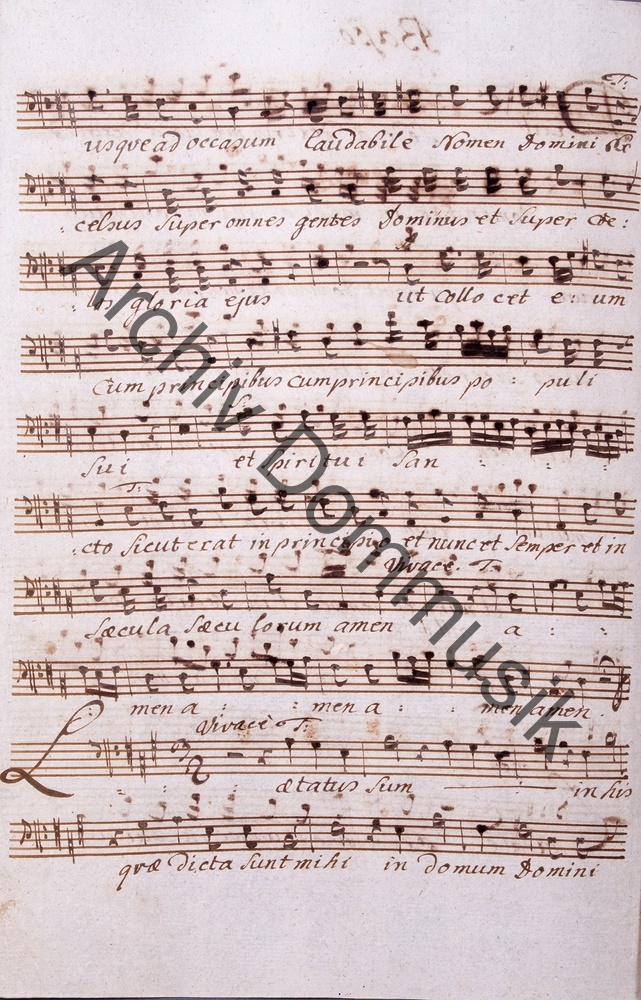 Basso
T:
usque ad occasum laudabile Nomen Domini Ex
: celsus super omnes gentes Dominus et super Coe:
: los gloria ejus ut Collo cet e : um
Cum principibus cum principibus po : puli
sui et spiritui San : : :
T:
: cto sicut erat in principio et nunc et semper et in
Vivace T:
sæcula sæcu lorum amen a : :
men a : : men a : : men amen.
Vivace T:
L : : ætatus sum in his
quæ dicta sunt mihi in domum Domini
Archiv Dommusik